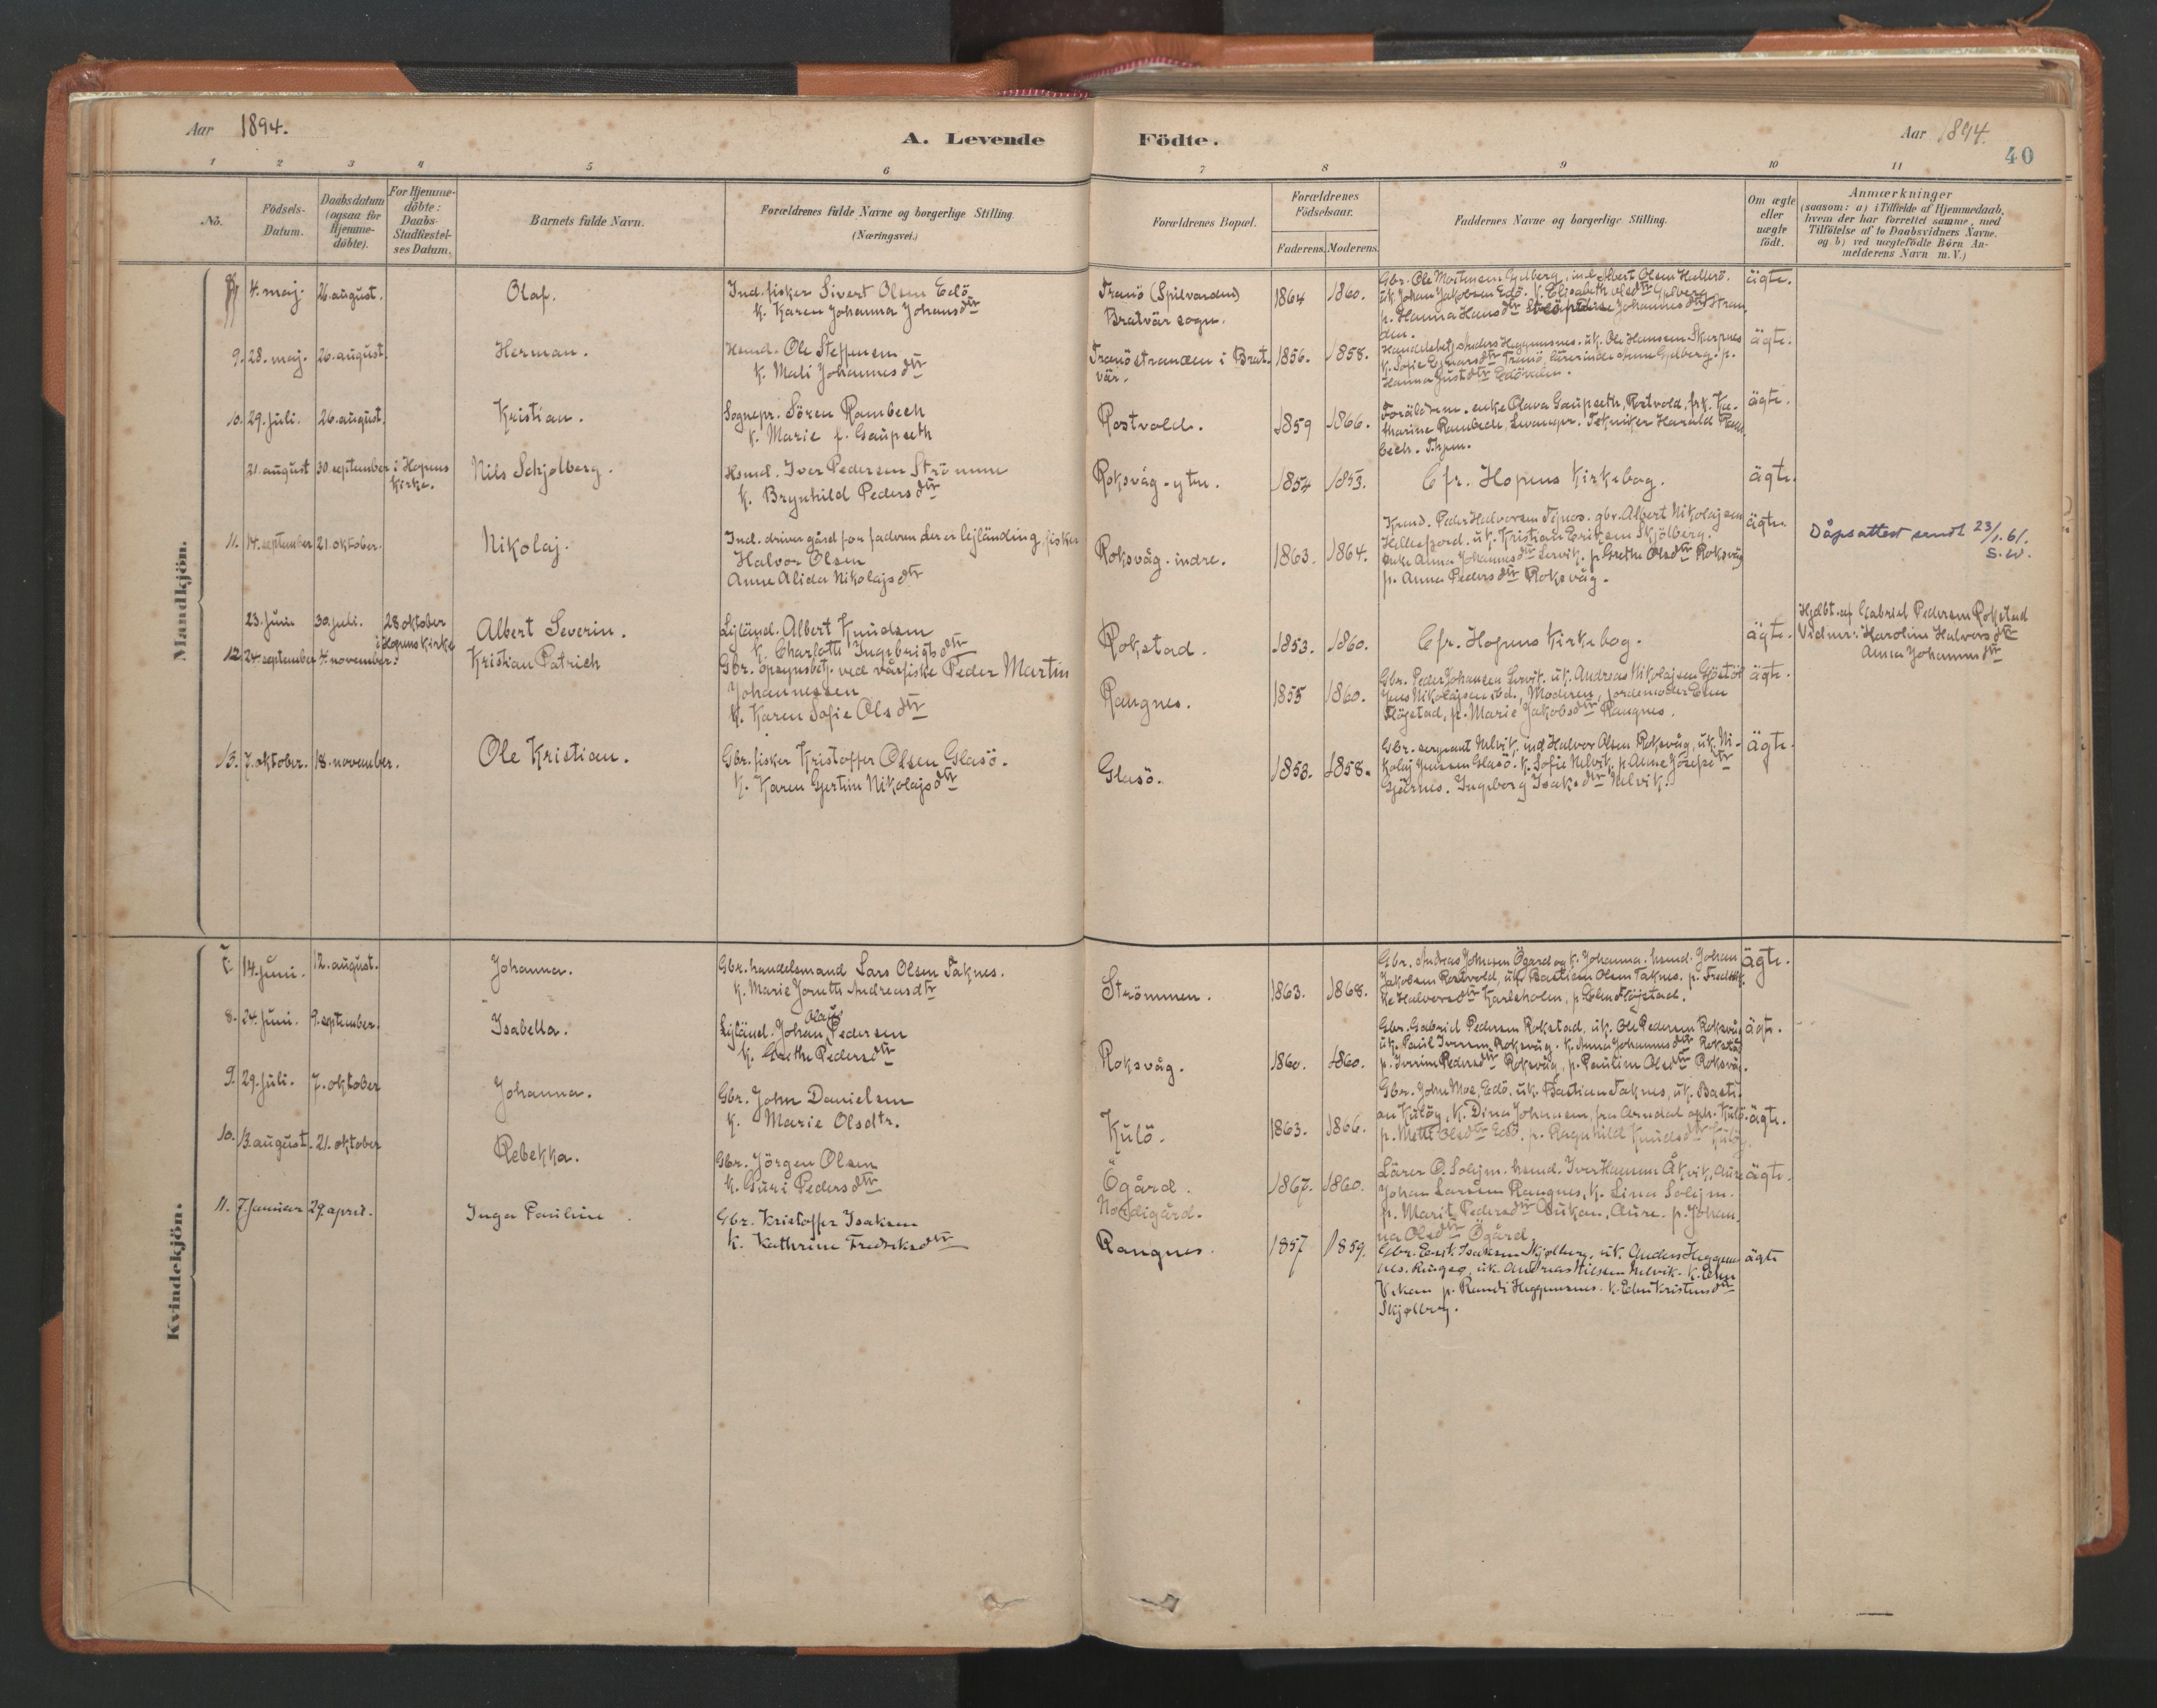 Aar 1894.
A. Levende Födte.
Aar 1894.
40
1 2 3 4 5 6 7 8 9 10 11
No.
Födsels-
Datum.
Daabsdatum
(ogsaa for
Hjemme-
döbte).
For Hjemme-
döbte:
Daabs-
Stadfæstel-
ses Datum.
Barnets fulde Navn.
Forældrenes fulde Navne og borgerlige Stilling.
(Næringsvei.)
Forældrenes Bopæl.
Forældrenes
Födselsaar.
Faderens. Moderens.
Faddernes Navne og borgerlige Stilling.
Om ægte
eller
uægte
födt.
Anmærkninger
(saasom: a) i Tilfælde af Hjemmedaab,
hvem der har forrettet samme, med
Tilföielse af to Daabsvidners Navne.
og b) ved uægtefödte Börn An-
melderens Navn m. V.)
Mandkjön.
4. maj. 26. august. Olaf.
Ind. fisker Sivert Olsen Edö
k. Karen Johanna Johansdtr
Tranö (Spilvarden)
Bratvär sogn.
1864 1860.
Gbr. Ole Mortensen Gylberg, ind. Albert Olsen Hallsö.
uk. Johan Jakobsen Edö. k. Elisabeth Olsdtr Gylberg
p. Hanna Hansdtr Johannesdtr Stran
den.
ägte.
9. 28. maj. 26. august. Herman.
Hsmd. Ole Steffensen
k. Mali Johannesdtr
Tranöstranden i Brat-
vär.
1856. 1858.
Handelsbetj. Anders Heggemsnes. uk. Ole Hansen Skarpnes
k. Sofie Tranö, lärerinde Anne Gylberg. p.
Hanna Edövalen.
ägte.
10. 29. juli. 26. august. Kristian.
Sognepr. Sören Rambech
k. Marie f. Gaupseth
Rostvold.
1859 1866.
Foräldrene. enke Olava Gaupseth, Rostvold, frk. Ka-
tharine Rambech, Levanger. Tekniker Harald Ram-
bech. Thjem.
ägte.
31. august 30. september i Hopens
kirke.
Nils Schjölberg.
Hsmd. Iver Pedersen Strömme
k. Brynhild Pedersdtr
Roksvåg - ytre.
1854 1853.
Cfr. Hopens kirkebog.
ägte.
11. 14. september 21. oktober. Nikolaj.
Ind. driver gård for faderen der er lejlånding, fisker
Halvor Olsen
Anne Alida Nikolajsdtr
Roksvåg - indre.
1863. 1864.
Peder Halvorsen gbr. Albert Nikolajsen
uk. Kristian Eriksen Skjölberg.
enke Anna Johannesdtr Lervik. p. Grethe Olsdtr Roksvåg
p. Anna Pedersdtr Roksvåg.
ägte.
Dåpsattest sendt 23/1.61.
S.W.
23. juni 30. juli. 28 oktober
i Hopens kirke
Albert Severin.
Lejländ. Albert Knudsen
k. Charlotte Ingebrigtsdtr
Rokstad.
1853. 1860.
Cfr. Hopens kirkebog.
ägte.
Hjdbt. af Gabriel Pedersen Rokstad
Vidner: Karolin Halvorsdtr
Anna Johannesdtr
12. 24. september 4. november. Kristian Patrich
Gbr. opsynsbetj. ved vårfiske Peder Martin
Johannessen
k. Karen Sofie Olsdtr
Rangnes.
1855 1860.
Gbr. Peder Johansen Lervik. uk. Andreas Nikolajsen Gjöstöl
Jens Nikolajsen ibd., Moderen, jordemoder Elen
Flöjstad, p. Marie Jakobsdtr Rangnes.
ägte.
13. 7. oktober. 18. november. Ole Kristian.
Gbr. fisker Kristoffer Olsen Glasö.
k. Karen Gjertine Nikolajsdtr
Glasö.
1853. 1858.
Gbr. sergeant Nelvik, ind Halvor Olsen Roksvåg, uk. Ni-
kolaj Jensen Glasö. k. Sofie Nelvik. p. Anne
Gjärnes. Ingeborg Isaksdtr Nelvik.
ägte.
Kvindekjön.
7. 14. juni. 12. august. Johanna.
Gbr. handelsmand Lars Olsen Taknes.
k. Marie Joruth Andreasdtr
Strömmen.
1863. 1868.
Gbr. Andreas Johnsen Ögard og k. Johanna. hsmd. Johan
Jakobsen Rostvold, uk. Bastian Olsen Taknes. p. Fredrik-
ke Halvorsdtr Karlsholm, p. Elen Flöjstad.
ägte.
8. 24. juni. 9. september. Isabella.
Lejländ. Johan Olaus Pedersen
k. Grethe Pedersdtr
Roksvåg.
1860. 1860.
Gbr. Gabriel Pedersen Rokstad, uk. Ole Pedersen Roksvåg
uk. Paul Iversen Roksvåg. k. Anna Johannesdtr Rokstad
p. Iverine Pedersdtr Roksvåg, p. Pauline Olsdtr Roksvåg.
ägte.
9. 29. juli. 7. oktober Johanna.
Gbr. John Danielsen
k. Marie Olsdtr.
Kulö.
1863. 1866.
Gbr. John Moe, Edö, uk. Bastian Taknes, uk. Basti-
an Kulöy, k. Dina Johnsen, fra Arendal oph. Kulö
p. Mette Olsdtr Edö. p. Ragnhild Knudsdtr Kulöy.
ägte.
10. 13. august. 21. oktober Rebekka.
Gbr. Jörgen Olsen
k. Guri Pedersdtr
Ögård.
Nordigård.
1867. 1860.
Lärer O. Solejm. hsmd. Iver Hansen Åkvik, Aure
Johan Larsen Rangnes, k. Lina Solejm.
p. Marit Pedersdtr Aure. p. Johan-
na Olsdtr Ögård.
ägte.
11. 7. januar 29. april. Inga Pauline.
Gbr. Kristoffer Isaksen
k. Kathrine Fredriksdtr
Rangnes.
1857 1859.
Gbr. Erik Isaksen Skjölberg, uk. Anders Heggems-
nes, Ringsö, uk. Andreas Nilsen Nelvik. k. Elen
Vikan p. Randi Heggemsnes. k. Elen Kristensdtr
Skjölberg.
ägte